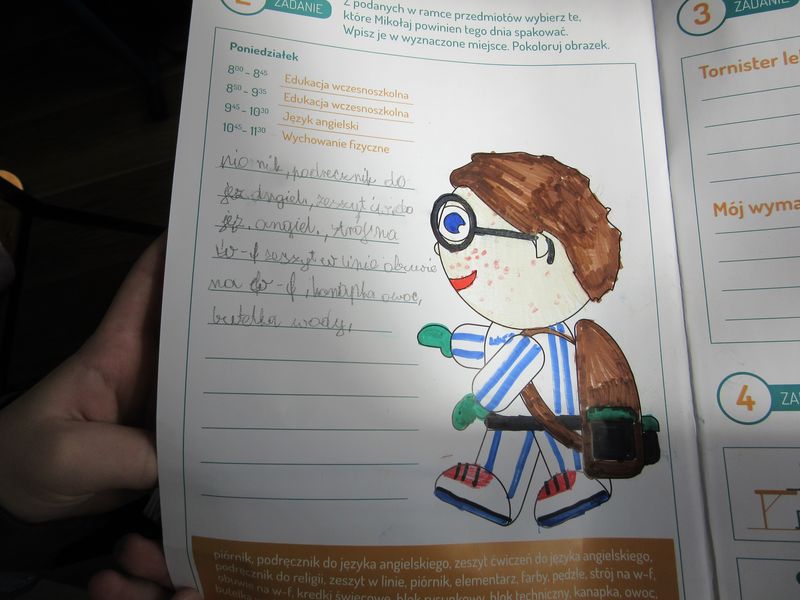 2 ZADANIE
Z podanych w ramce przedmiotów wybierz te,
które Mikołaj powinien tego dnia spakować.
Wpisz je w wyznaczone miejsce. Pokoloruj obrazek.
Poniedziałek
8⁰⁰ - 8⁴⁵ Edukacja wczesnoszkolna
8⁵⁰ - 9³⁵ Edukacja wczesnoszkolna
9⁴⁵ - 10³⁰ Język angielski
10⁴⁵ - 11³⁰ Wychowanie fizyczne
piórnik, podręcznik do
jęz. angiel., zeszyt ćw. do
jęz. angiel., strój na
w-f zeszyt w linie obuwie
na w-f, kanapka owoc,
butelka wody,
piórnik, podręcznik do języka angielskiego, zeszyt ćwiczeń do języka angielskiego,
podręcznik do religii, zeszyt w linie, piórnik, elementarz, farby, pędzle, strój na w-f,
obuwie na w-f, kredki świecowe, blok rysunkowy, blok techniczny, kanapka, owoc,
butelka
3 ZADANIE
Tornister
Mój
4